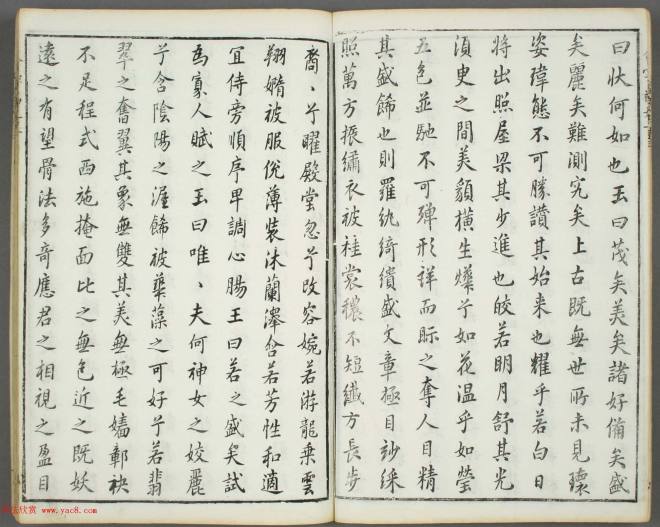 曰狀何如也玉曰茂矣美矣諸好備矣盛
矣麗矣難測究矣上古既無世所未見瓌
姿瑋態不可勝讚其始来也耀乎若白日
將出照屋梁其少進也皎若明月舒其光
湏臾之間美貌横生爗兮如花温乎如瑩
五色並馳不可殫形詳而眎之奪人目精
其盛飾也則羅紈綺繢盛文章極目妙綵
照萬方振繡衣被袿裳穠不短纖方長步
裔〻兮曜殿堂忽兮改容婉若游龍乗雲
翔嫷被服侻薄裝沐蘭澤含若芳性和適
宜侍旁順序卑調心腸王曰若之盛矣試
為寡人賦之玉曰唯〻夫何神女之姣麗
兮含陰陽之渥飾被華藻之可好兮若翡
翠之奮翼其象無雙其美無極毛嬙鄣袂
不足程式西施掩面比之無色近之既妖
遠之有望骨法多奇應君之相視之盈目
www.yac8.com